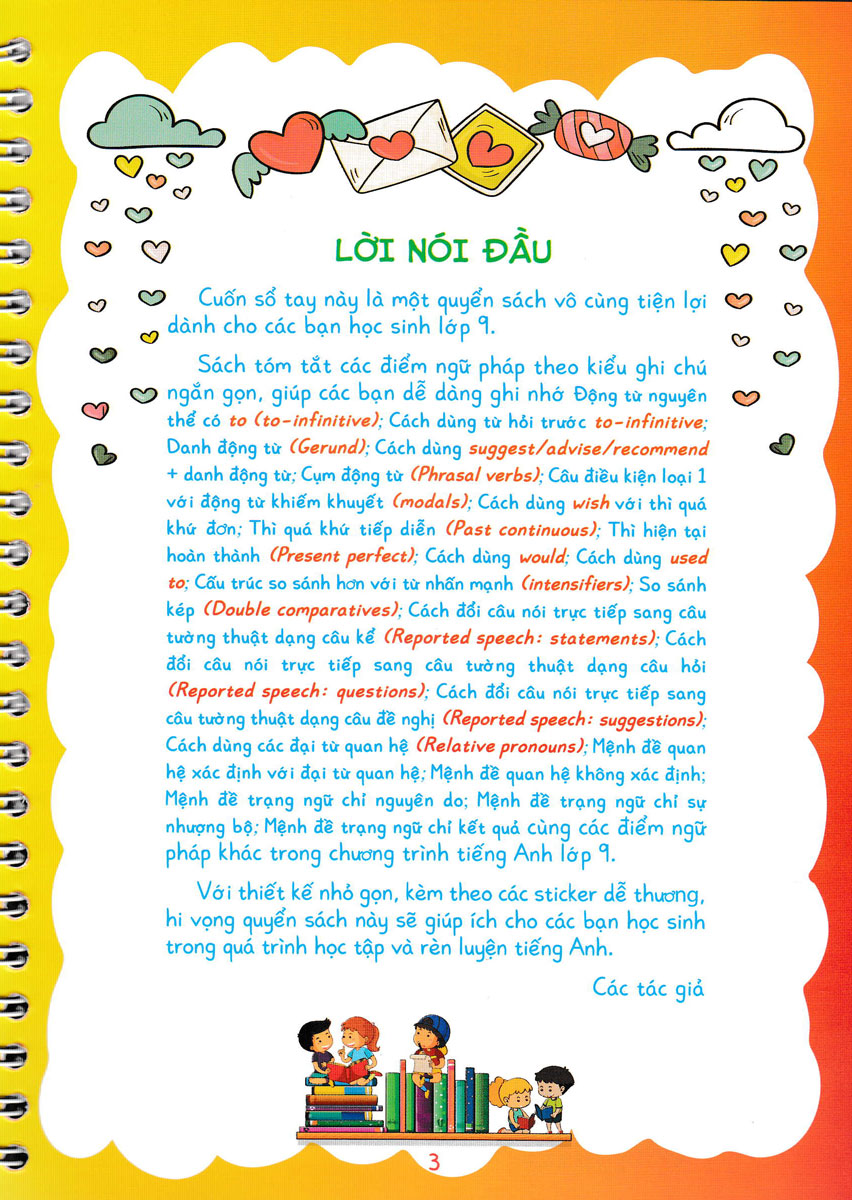 LỜI NÓI ĐẦU
Cuốn sổ tay này là một quyển sách vô cùng tiện lợi
dành cho các bạn học sinh lớp 9.
Sách tóm tắt các điểm ngữ pháp theo kiểu ghi chú
ngắn gọn, giúp các bạn dễ dàng ghi nhớ Động từ nguyên
thể có to (to-infinitive); Cách dùng từ hỏi trước to-infinitive;
Danh động từ (Gerund); Cách dùng suggest/advise/recommend
+ danh động từ; Cụm động từ (Phrasal verbs); Câu điều kiện loại 1
với động từ khiếm khuyết (modals); Cách dùng wish với thì quá
khứ đơn; Thì quá khứ tiếp diễn (Past continuous); Thì hiện tại
hoàn thành (Present perfect); Cách dùng would; Cách dùng used
to; Cấu trúc so sánh hơn với từ nhấn mạnh (intensifiers); So sánh
kép (Double comparatives); Cách đổi câu nói trực tiếp sang câu
tường thuật dạng câu kể (Reported speech: statements); Cách
đổi câu nói trực tiếp sang câu tường thuật dạng câu hỏi
(Reported speech: questions); Cách đổi câu nói trực tiếp sang
câu tường thuật dạng câu đề nghị (Reported speech: suggestions);
Cách dùng các đại từ quan hệ (Relative pronouns); Mệnh đề quan
hệ xác định với đại từ quan hệ; Mệnh đề quan hệ không xác định;
Mệnh đề trạng ngữ chỉ nguyên do; Mệnh đề trạng ngữ chỉ sự
nhượng bộ; Mệnh đề trạng ngữ chỉ kết quả cùng các điểm ngữ
pháp khác trong chương trình tiếng Anh lớp 9.
Với thiết kế nhỏ gọn, kèm theo các sticker dễ thương,
hi vọng quyển sách này sẽ giúp ích cho các bạn học sinh
trong quá trình học tập và rèn luyện tiếng Anh.
Các tác giả
3